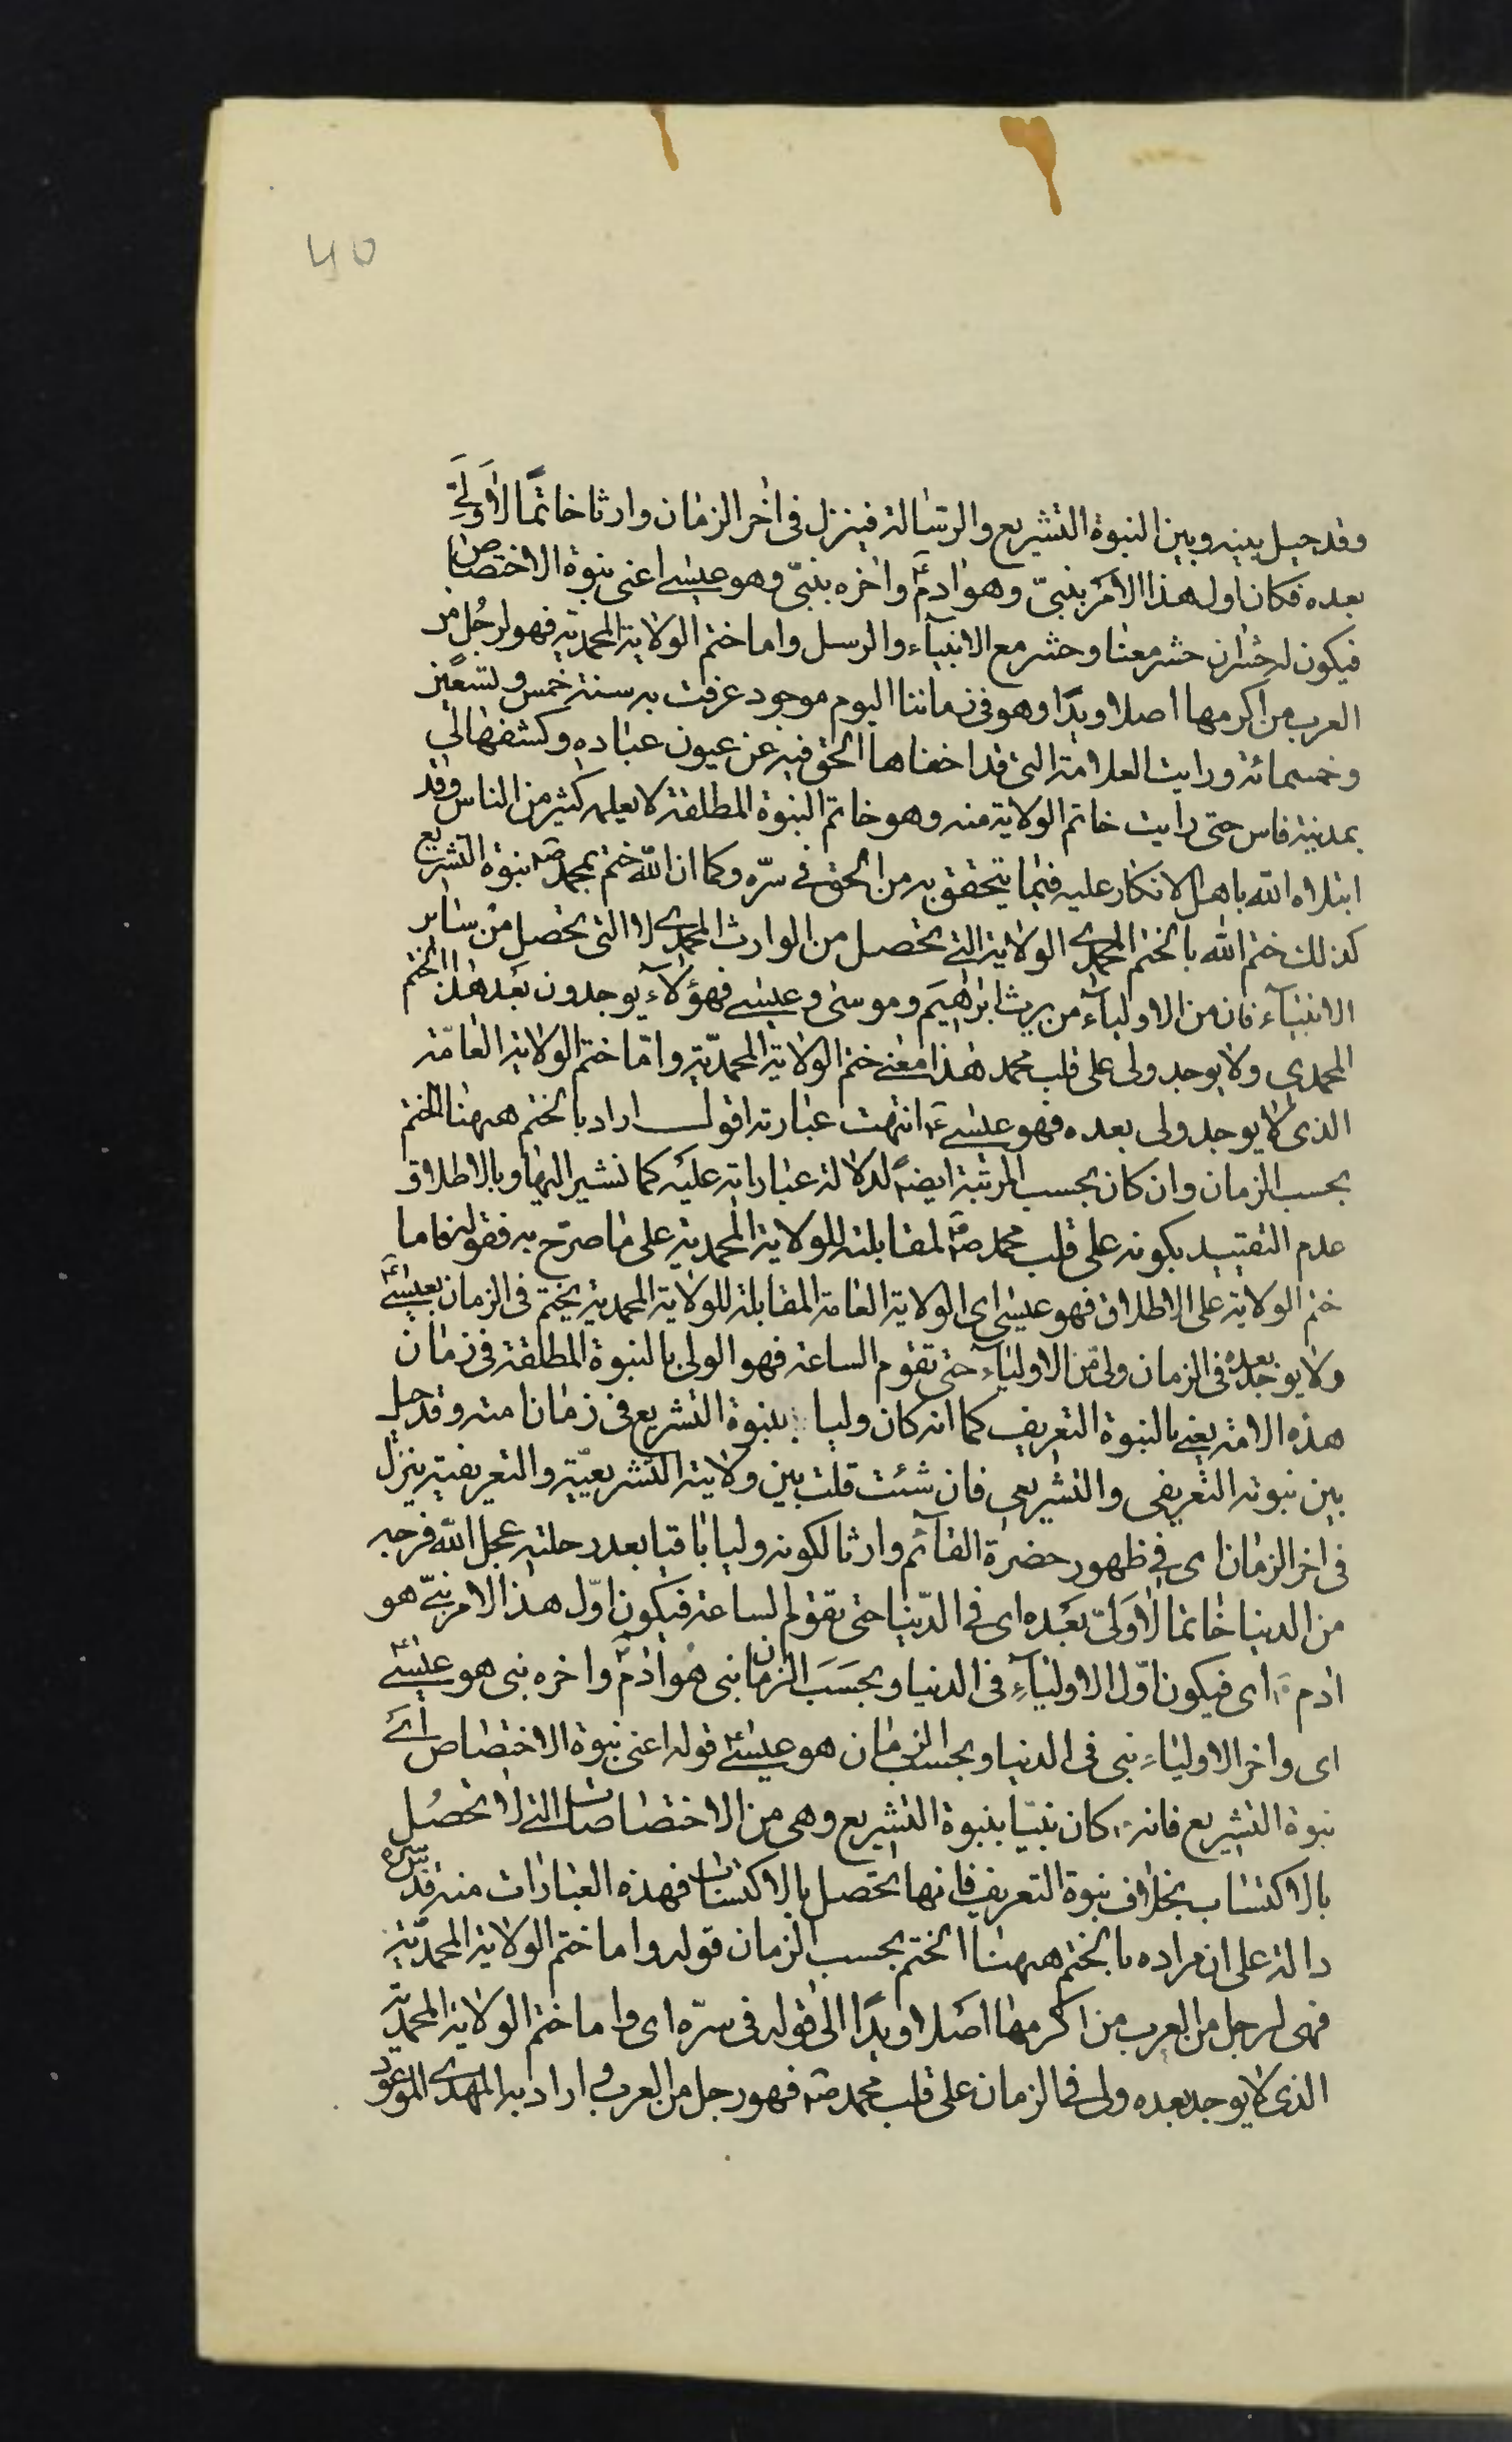 40
وقد حيل بينه وبين النبوة التشريع والرسالة فينزل فى اخر الزمان وارثا خاتمًا لا وَلَىّ
بعده فكان اول هذا الامر بنبىّ وهو ادمؑ واخره بنبىّ وهو عيسى اعنى بنوة الاختصاص
فيكون له حشران حشر معنا وحشر مع الانبيآء والرسل واما ختم الولاية المحمدية فهو لرجُل من
العرب من اكرمها اصلا وبدًا وهو فى زماننا اليوم موجود عرفت به سنة خمس وتسعين
وخمسمائة ورايت العلامة التى قد اخفاها الحق فيه عن عيون عباده وكشفها لى
بمدينة فاس حتى رايت خاتم الولاية منه وهو خاتم النبوة المطلقة لا يعلمه كثير من الناس وقد
ابتلاه الله باهل الانكار عليه فيما يتحقق به من الحق فى سرّه وكما ان اللّه ختم بمحمد صَ نبوة التشريع
كذلك ختم الله بالختم المحمدى الولاية التى تحصل من الوارث المحمدى لا التى تحصل من ساير
الانبيآء فان من الاوليآء من يرث ابراهيم وموسى وعيسى فهؤلآء يوجدون بعد هذا الختم
المحمدى ولا يوجد ولى على قلب محمد هذا معنى ختم الولاية المحمديّة وامّا ختم الولاية العامّة
الذى لا يوجد ولى بعده فهو عيسىؑ انتهت عبارته اقول اراد بالختم ههنا الختم
بحسب الزمان وان كان بحسب المرتبة ايضًا لدلالة عباراته عليه كما نشير اليها وبالاطلاق
عدم التقييد بكونه على قلب محمد صَ لمقابلته للولاية المحمدية على ما صرّح به فقوله فاما
ختم الولاية على الاطلاق فهو عيسى اى الولاية العامة المقابلة للولاية المحمدية يختم فى الزمان بعيسىؑ
ولا يوجد بعده فى الزمان ولى من الاوليآء حتى تقوم الساعة فهو الولى بالنبوة المطلقة فى زمان
هذه الامة يعنى بالنبوة التعريف كما انه كان وليا بنبوة التشريع فى زمان امته وقد حيل
بين نبوته التعريفى والتشريعى فان شئت قلت بين ولاية التشريعيّة والتعريفية ينزل
فى اخر الزمان اى فى ظهور حضرة القآئم وارثا لكونه وليا باقيا بعد رحلته عجل اللّه فرجه
من الدنيا خاتما لا ولىّ بعده اى فى الدّنيا حتى تقوم الساعة فيكون اوّل هذا الامر نبىّ هو
ادمؑ اى فيكون اوّل الاوليآءِ فى الدنيا وبحسب الزمان نبى هو ادمؑ واخره نبى هو عيسىؑ
اى واخر الاولياءِ نبى فى الدنيا وبحسب الزمان هو عيسىؑ قوله اعنى نبوة الاختصاص اى
نبوة التشريع فانهؑ كان نبيّا بنبوة التشريع وهى من الاختصاصات التى لا تحصُل
بالاكتساب بخلاف نبوة التعريف فانها تحصل بالاكتساب فهذه العبارات منه قدس سره
دالة على ان مراده بالختم ههنا الختم بحسب الزمان قوله واما ختم الولاية المحمديّة
فهى لرجل من العرب من اكرمها اصلا وبدًا الى قوله فى سرّه اى واما ختم الولاية المحمديّة
الذى لا يوجد بعده ولى فى الزمان على قلب محمد صَ فهو رجل من العرب و اراد به المهدى الموعود